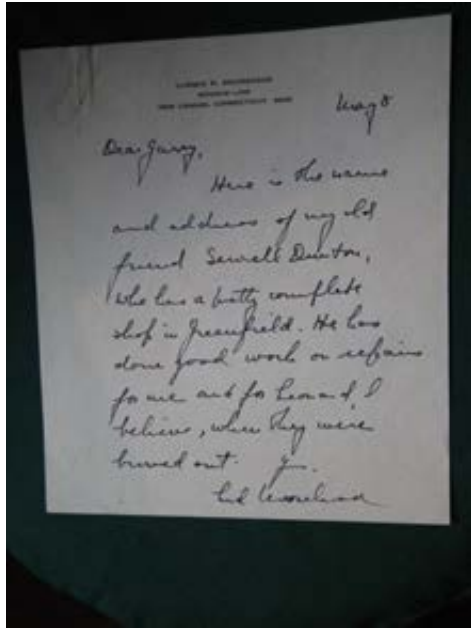 NEW CANAAN, CONNECTICUT
May 8
Dear
Here is the name
and address of my old
friend Sewell Dunton,
who has a pretty complete
shop in Greenfield. He has
done good work on repairs
for me and for Leonard, I
believe, when they were
burned out.